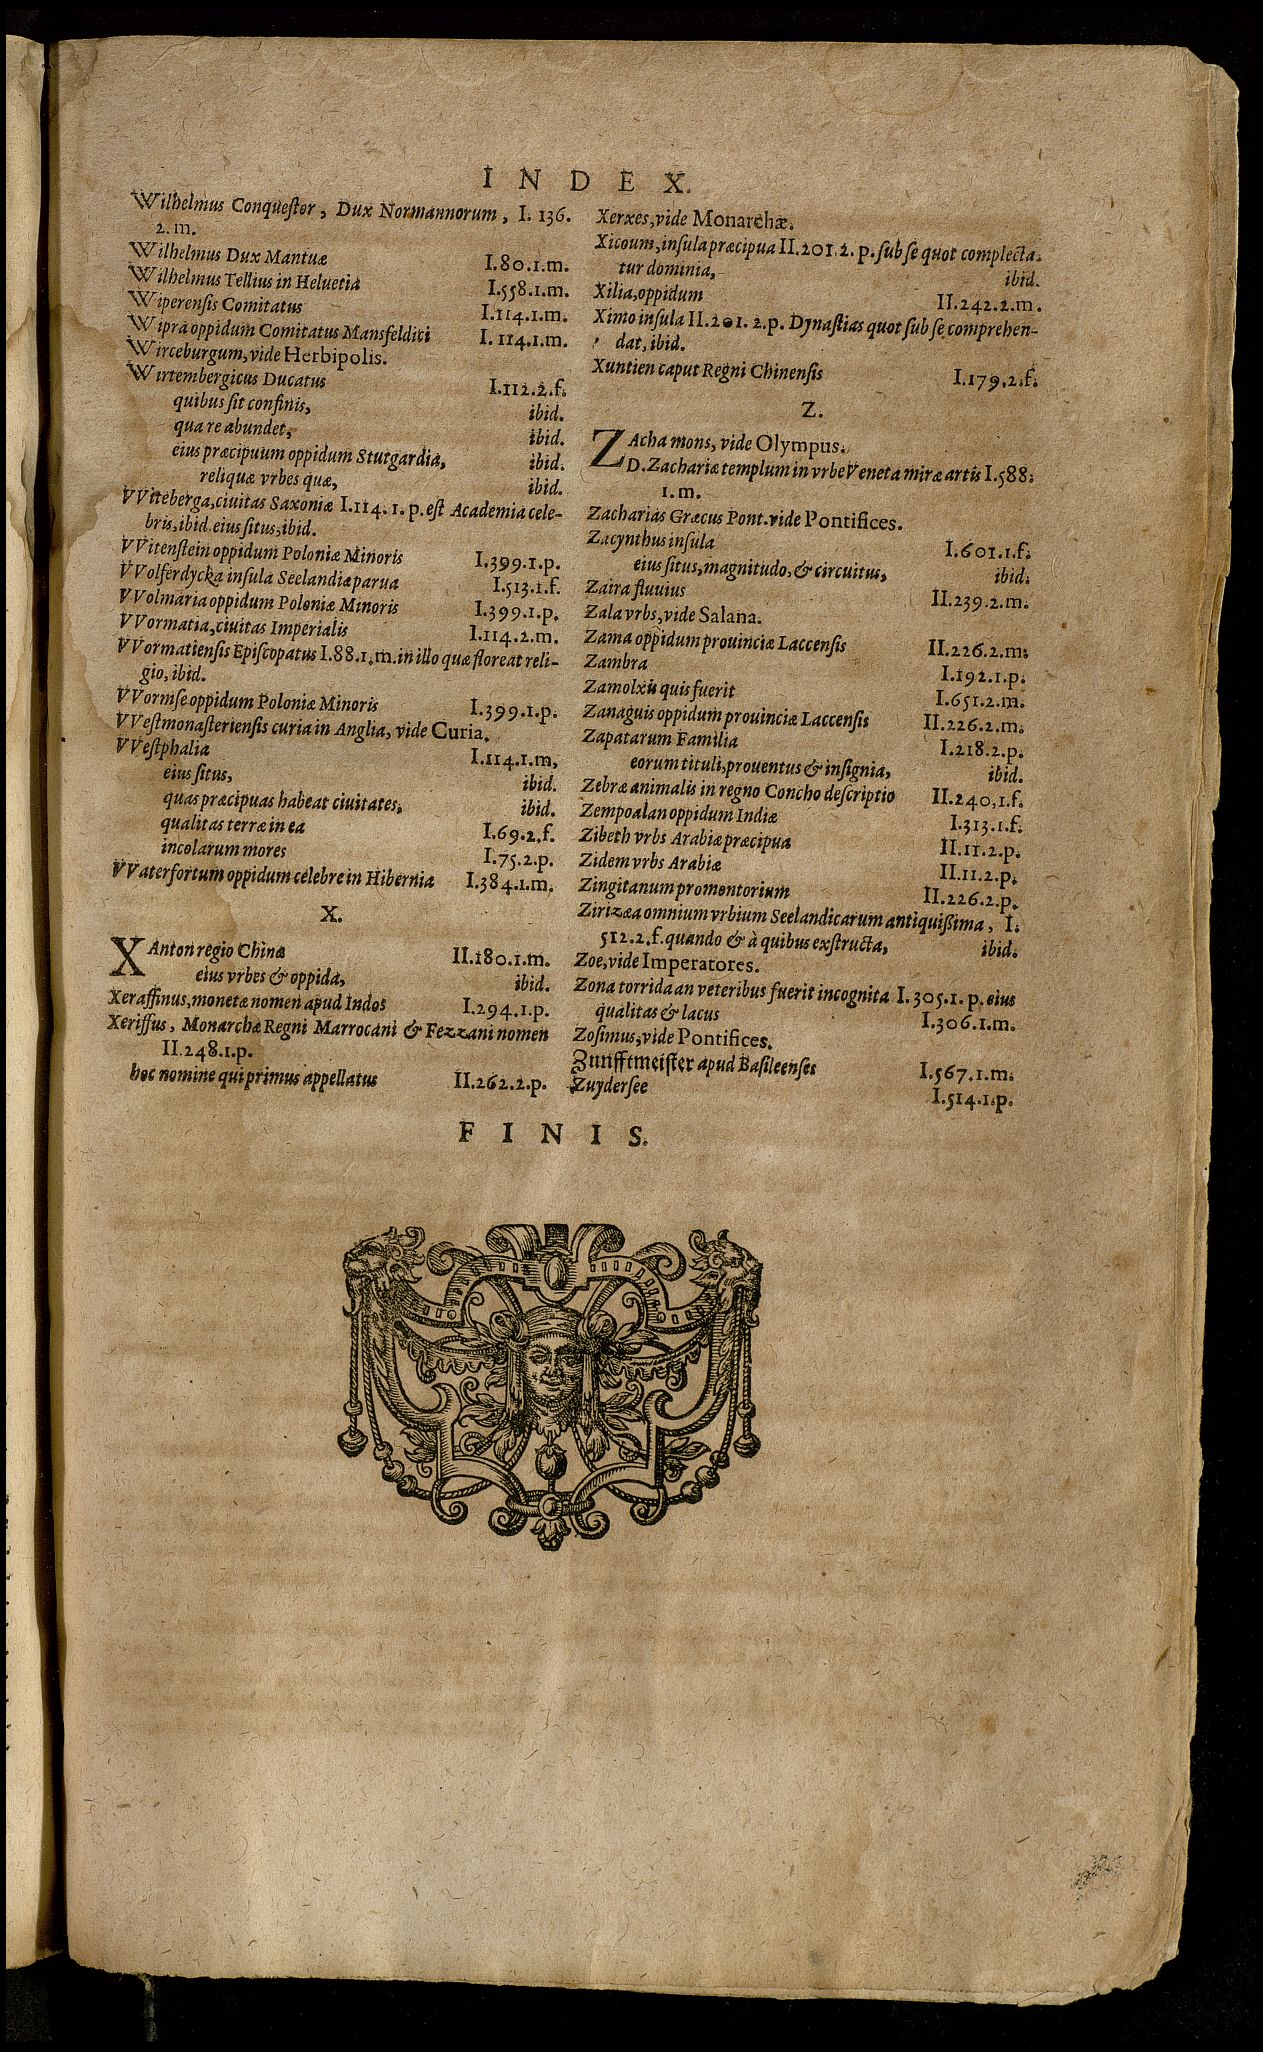 INDEX.
Wilhelmus Conqueſtor, Dux Normannorum, I. 136.
2. m.
Wilhelmus Dux Mantuæ I.80.1.m.
Wilhelmus Tellius in Heluetia I.558.1.m.
Wiperenſis Comitatus I.114.1.m.
Wipra oppidum Comitatus Mansfeldici I. 114.1.m.
Wirceburgum, vide Herbipolis.
Wirtembergicus Ducatus I.112.2.f.
quibus ſit confinis, ibid.
qua re abundet, ibid.
eius præcipuum oppidum Stutgardia, ibid.
reliquæ vrbes quæ, ibid.
VViteberga, ciuitas Saxoniæ I.114. 1. p. eſt Academia cele-
bris, ibid. eius ſitus, ibid.
VVitenſtein oppidum Poloniæ Minoris I.399.1.p.
VVolferdycka inſula Seelandiæ parua I.513.1.f.
VVolmaria oppidum Poloniæ Minoris I.399.1.p.
VVormatia, ciuitas Imperialis I.114.2.m.
VVormatienſis Epiſcopatus I.88.1.m. in illo quæ floreat reli-
gio, ibid.
VVormſe oppidum Poloniæ Minoris I.399.1.p.
VVeſtmonaſterienſis curia in Anglia, vide Curia.
VVeſtphalia I.114.1.m,
eius ſitus, ibid.
quas præcipuas habeat ciuitates, ibid.
qualitas terræ in ea I.69.2.f.
incolarum mores I.75.2.p.
VVaterfortum oppidum celebre in Hibernia I.384.1.m.
X.
XAnton regio Chinæ II.180.1.m.
eius vrbes & oppida, ibid.
Xeraffinus, monetæ nomen apud Indos I.294.1.p.
Xeriffus, Monarchæ Regni Marrocani & Fezzani nomen
II.248.1.p.
hoc nomine qui primus appellatus II.262.2.p.
Xerxes, vide Monarchæ.
Xicoum, inſula præcipua II.201.2. p. ſub ſe quot complecta-
tur dominia, ibid.
Xilia, oppidum II.242.2.m.
Ximo inſula II.201. 2.p. Dynaſtias quot ſub ſe comprehen-
dat, ibid.
Xuntien caput Regni Chinenſis I.179.2.f.
Z.
ZAcha mons, vide Olympus.
D. Zachariæ templum in vrbe Veneta miræ artis I.588.
1.m.
Zacharias Græcus Pont. vide Pontifices.
Zacynthus inſula I.601.1.f.
eius ſitus, magnitudo, & circuitus, ibid.
Zaira fluuius II.239.2.m.
Zala vrbs, vide Salana.
Zama oppidum prouinciæ Laccenſis II.226.2.m.
Zambra I.192.1.p.
Zamolxis quis fuerit I.651.2.m.
Zanaguis oppidum prouinciæ Laccenſis II.226.2.m.
Zapatarum Familia I.218.2.p.
eorum tituli, prouentus & inſignia, ibid.
Zebræ animalis in regno Concho deſcriptio II.240.1.f.
Zempoalan oppidum Indiæ I.313.1.f.
Zibeth vrbs Arabiæ præcipua II.11.2.p.
Zidem vrbs Arabiæ II.11.2.p.
Zingitanum promontorium II.226.2.p.
Zirizæa omnium vrbium Seelandicarum antiquißima, I.
512.2.f. quando & à quibus exſtructa, ibid.
Zoe, vide Imperatores.
Zona torrida an veteribus fuerit incognita I.305.1.p. eius
qualitas & lacus I.306.1.m.
Zoſimus, vide Pontifices.
Zunfftmeiſter apud Baſileenſes I.567.1.m.
Zuyderſee I.514.1.p.
FINIS.